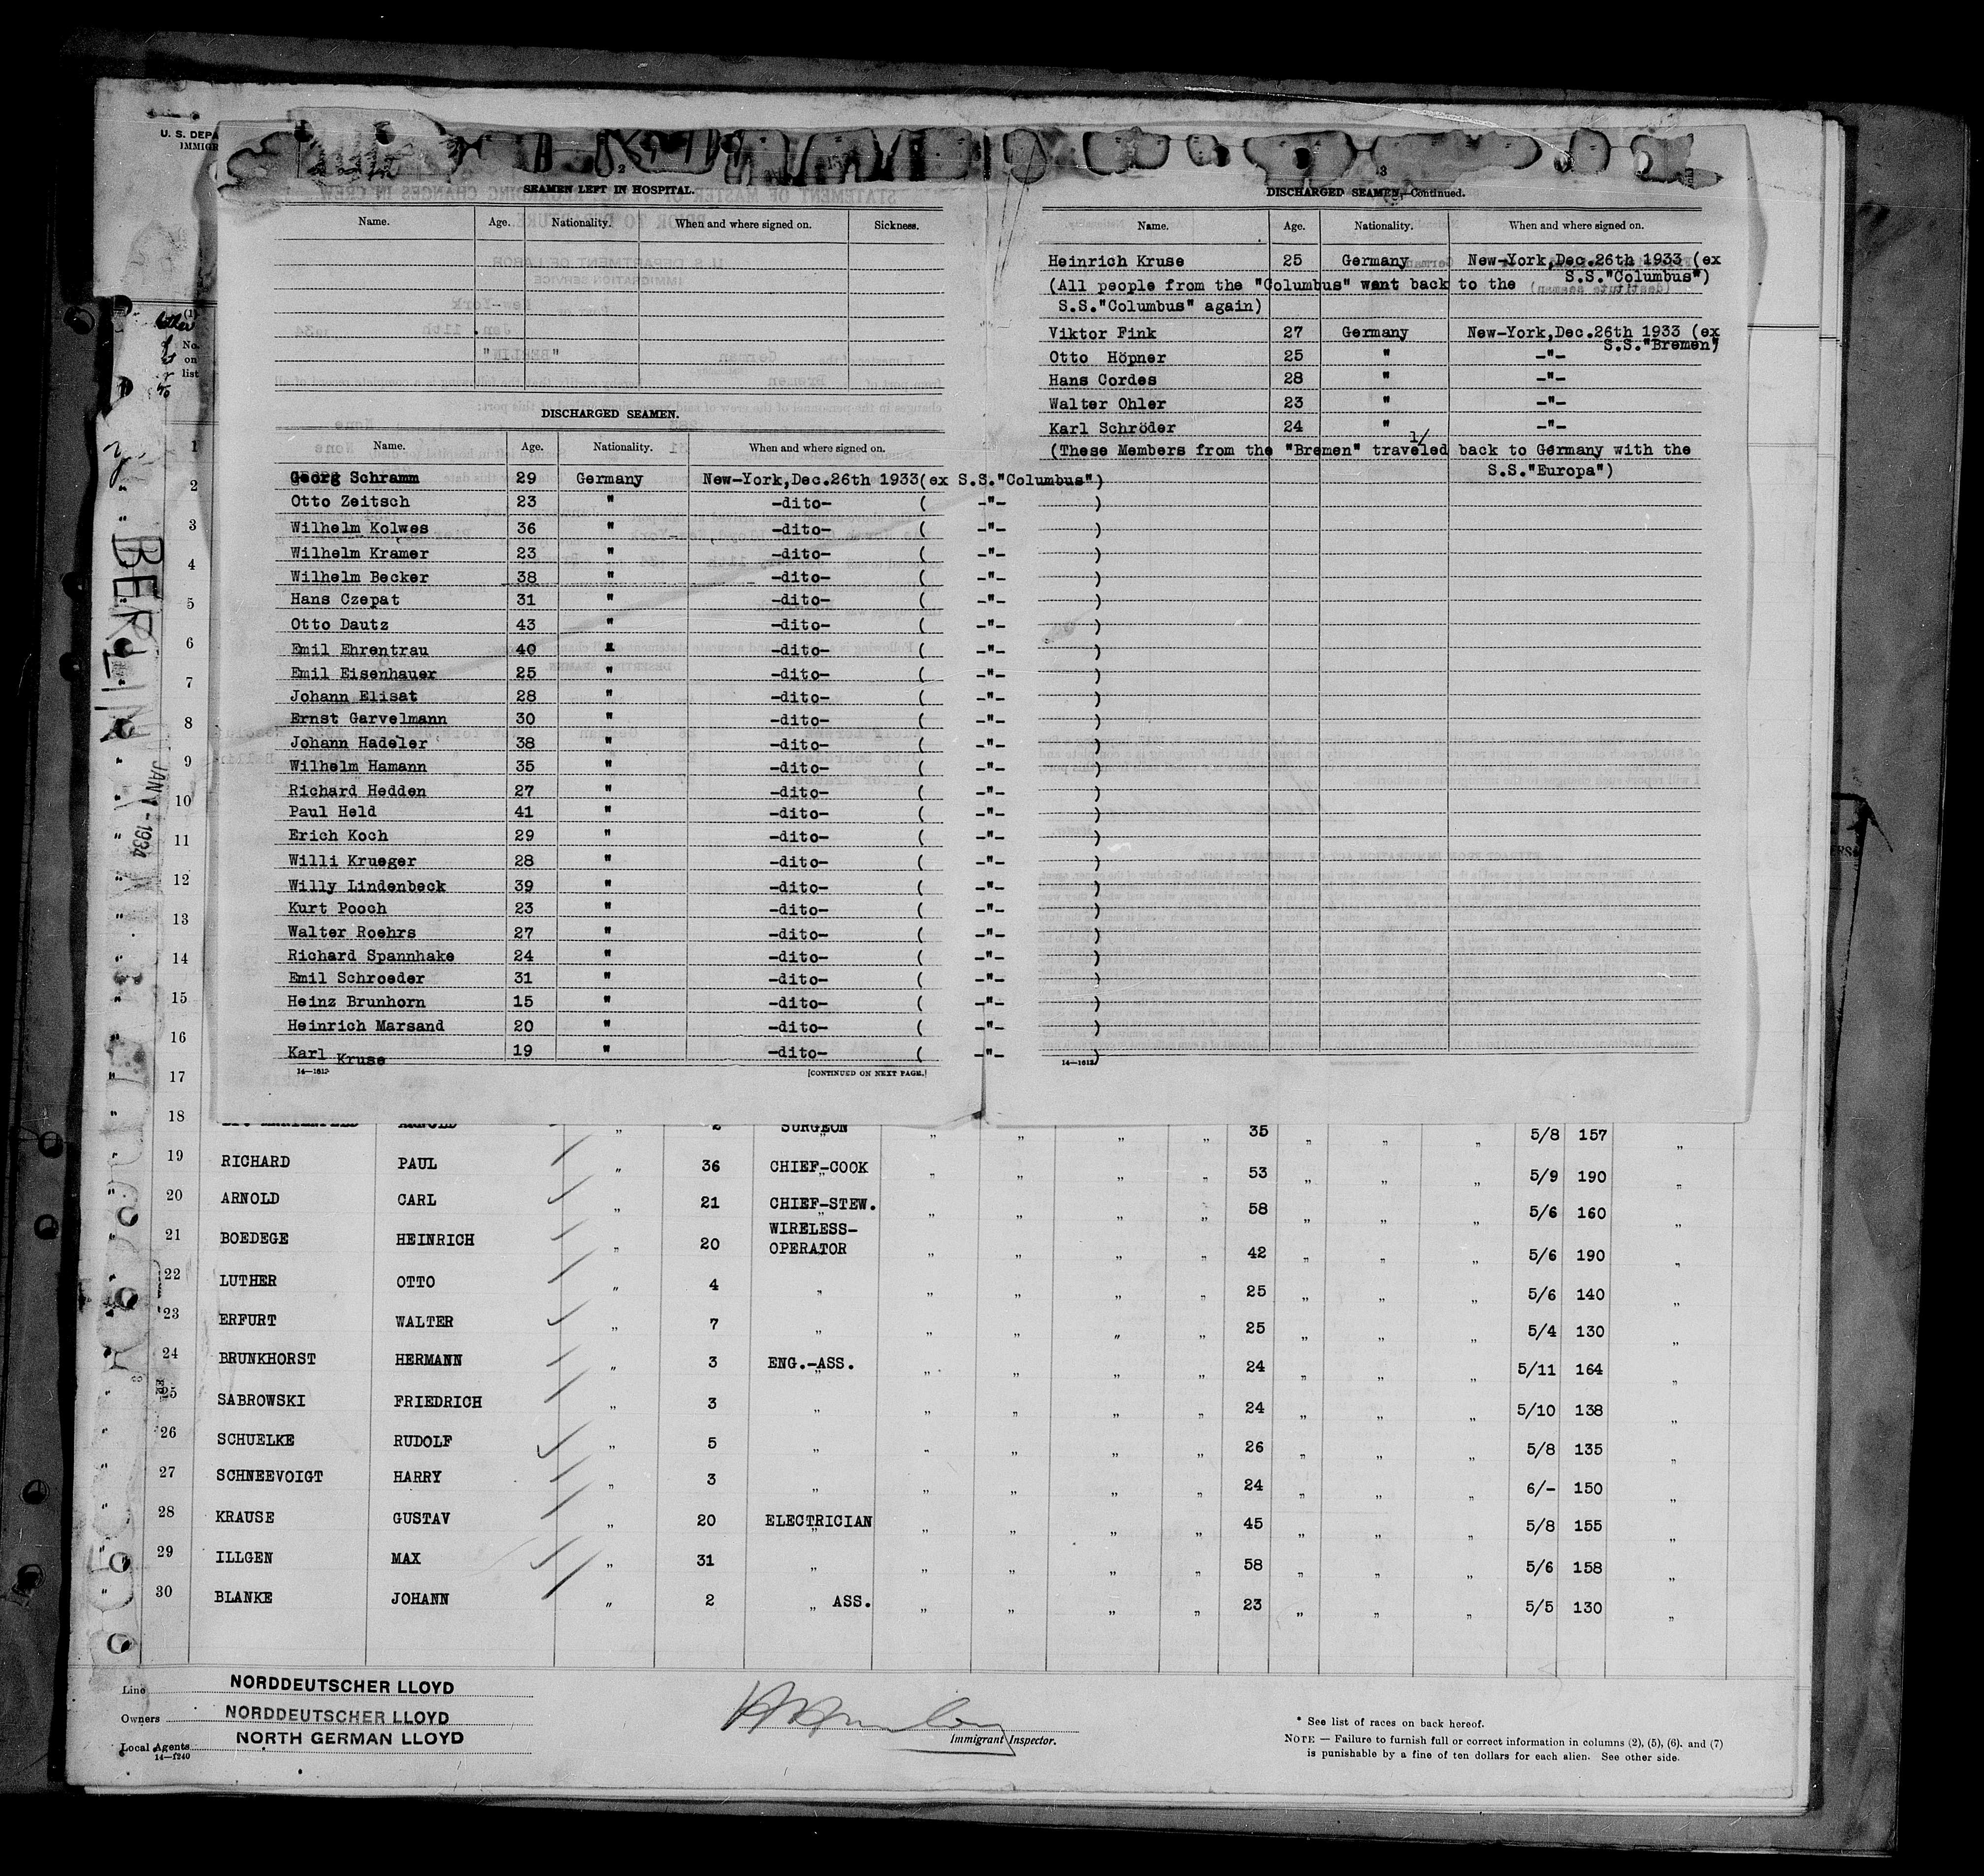 U. S. DEPA
IMMIGR
2
SEAMEN LEFT IN HOSPITAL.
Name. Age. Nationality. When and where signed on. Sickness.
DISCHARGED SEAMEN.
Name. Age. Nationality. When and where signed on.
Georg Schramm 29 Germany New-York,Dec.26th 1933(ex S.S."Columbus")
Otto Zeitsch 23 " -dito- ( -"- )
Wilhelm Kolwes 36 " -dito- ( -"- )
Wilhelm Kramer 23 " -dito- ( -"- )
Wilhelm Becker 38 " -dito- ( -"- )
Hans Czepat 31 " -dito- ( -"- )
Otto Dautz 43 " -dito- ( -"- )
Emil Ehrentrau 40 " -dito- ( -"- )
Emil Eisenhauer 25 " -dito- ( -"- )
Johann Elisat 28 " -dito- ( -"- )
Ernst Garvelmann 30 " -dito- ( -"- )
Johann Hadeler 38 " -dito- ( -"- )
Wilhelm Hamann 35 " -dito- ( -"- )
Richard Hedden 27 " -dito- ( -"- )
Paul Held 41 " -dito- ( -"- )
Erich Koch 29 " -dito- ( -"- )
Willi Krueger 28 " -dito- ( -"- )
Willy Lindenbeck 39 " -dito- ( -"- )
Kurt Pooch 23 " -dito- ( -"- )
Walter Roehrs 27 " -dito- ( -"- )
Richard Spannhake 24 " -dito- ( -"- )
Emil Schroeder 31 " -dito- ( -"- )
Heinz Brunhorn 15 " -dito- ( -"- )
Heinrich Marsand 20 " -dito- ( -"- )
Karl Kruse 19 " -dito- ( -"- )
14—1613
[CONTINUED ON NEXT PAGE.]
3
DISCHARGED SEAMEN,—Continued.
Name. Age. Nationality. When and where signed on.
Heinrich Kruse 25 Germany New-York,Dec.26th 1933 (ex
S.S."Columbus")
(All people from the "Columbus" want back to the
S.S."Columbus" again)
Viktor Fink 27 Germany New-York,Dec.26th 1933 (ex
S.S."Bremen")
Otto Höpner 25 " -"-
Hans Cordes 28 " -"-
Walter Ohler 23 " -"-
Karl Schröder 24 " -"-
(These Members from the "Bremen" traveled back to Germany with the
S.S."Europa")
14—1613
(1)
No.
on
list
BERLIN
JAN 1 - 1934
1
2
3
4
5
6
7
8
9
10
11
12
13
14
15
16
17
18 ARNOLD " 2 SURGEON " " " " 35 " " " 5/8 157 "
19 RICHARD PAUL " 36 CHIEF-COOK " " " " 53 " " " 5/9 190 "
20 ARNOLD CARL " 21 CHIEF-STEW. " " " " 58 " " " 5/6 160 "
21 BOEDEGE HEINRICH " 20 WIRELESS-
OPERATOR " " " " 42 " " " 5/6 190 "
22 LUTHER OTTO " 4 " " " " " 25 " " " 5/6 140 "
23 ERFURT WALTER " 7 " " " " " 25 " " " 5/4 130 "
24 BRUNKHORST HERMANN " 3 ENG.-ASS. " " " " 24 " " " 5/11 164 "
25 SABROWSKI FRIEDRICH " 3 " " " " " 24 " " " 5/10 138 "
26 SCHUELKE RUDOLF " 5 " " " " " 26 " " " 5/8 135 "
27 SCHNEEVOIGT HARRY " 3 " " " " " 24 " " " 6/- 150 "
28 KRAUSE GUSTAV " 20 ELECTRICIAN " " " " 45 " " " 5/8 155 "
29 ILLGEN MAX " 31 " " " " " 58 " " " 5/6 158 "
30 BLANKE JOHANN " 2 " ASS. " " " " 23 " " " 5/5 130 "
Line NORDDEUTSCHER LLOYD
Owners NORDDEUTSCHER LLOYD
Local Agents NORTH GERMAN LLOYD
14—1240
Immigrant Inspector.
* See list of races on back hereof.
NOTE — Failure to furnish full or correct information in columns (2), (5), (6), and (7)
is punishable by a fine of ten dollars for each alien. See other side.